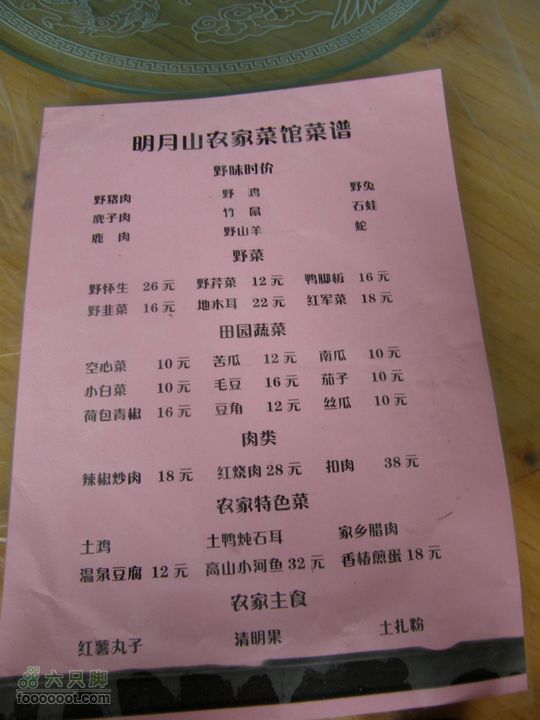 明月山农家菜馆菜谱
野味时价
野猪肉 野 鸡 野兔
麂子肉 竹 鼠 石蛙
鹿 肉 野山羊 蛇
野菜
野怀生 26 元 野芹菜 12 元 鸭脚板 16 元
野韭菜 16 元 地木耳 22 元 红军菜 18 元
田园蔬菜
空心菜 10 元 苦瓜 12 元 南瓜 10 元
小白菜 10 元 毛豆 16 元 茄子 10 元
荷包青椒 16 元 豆角 12 元 丝瓜 10 元
肉类
辣椒炒肉 18 元 红烧肉 28 元 扣肉 38 元
农家特色菜
土鸡 土鸭炖石耳 家乡腊肉
温泉豆腐 12 元 高山小河鱼 32 元 香椿煎蛋 18 元
农家主食
红薯丸子 清明果 土扎粉
六只脚
foooooot.com